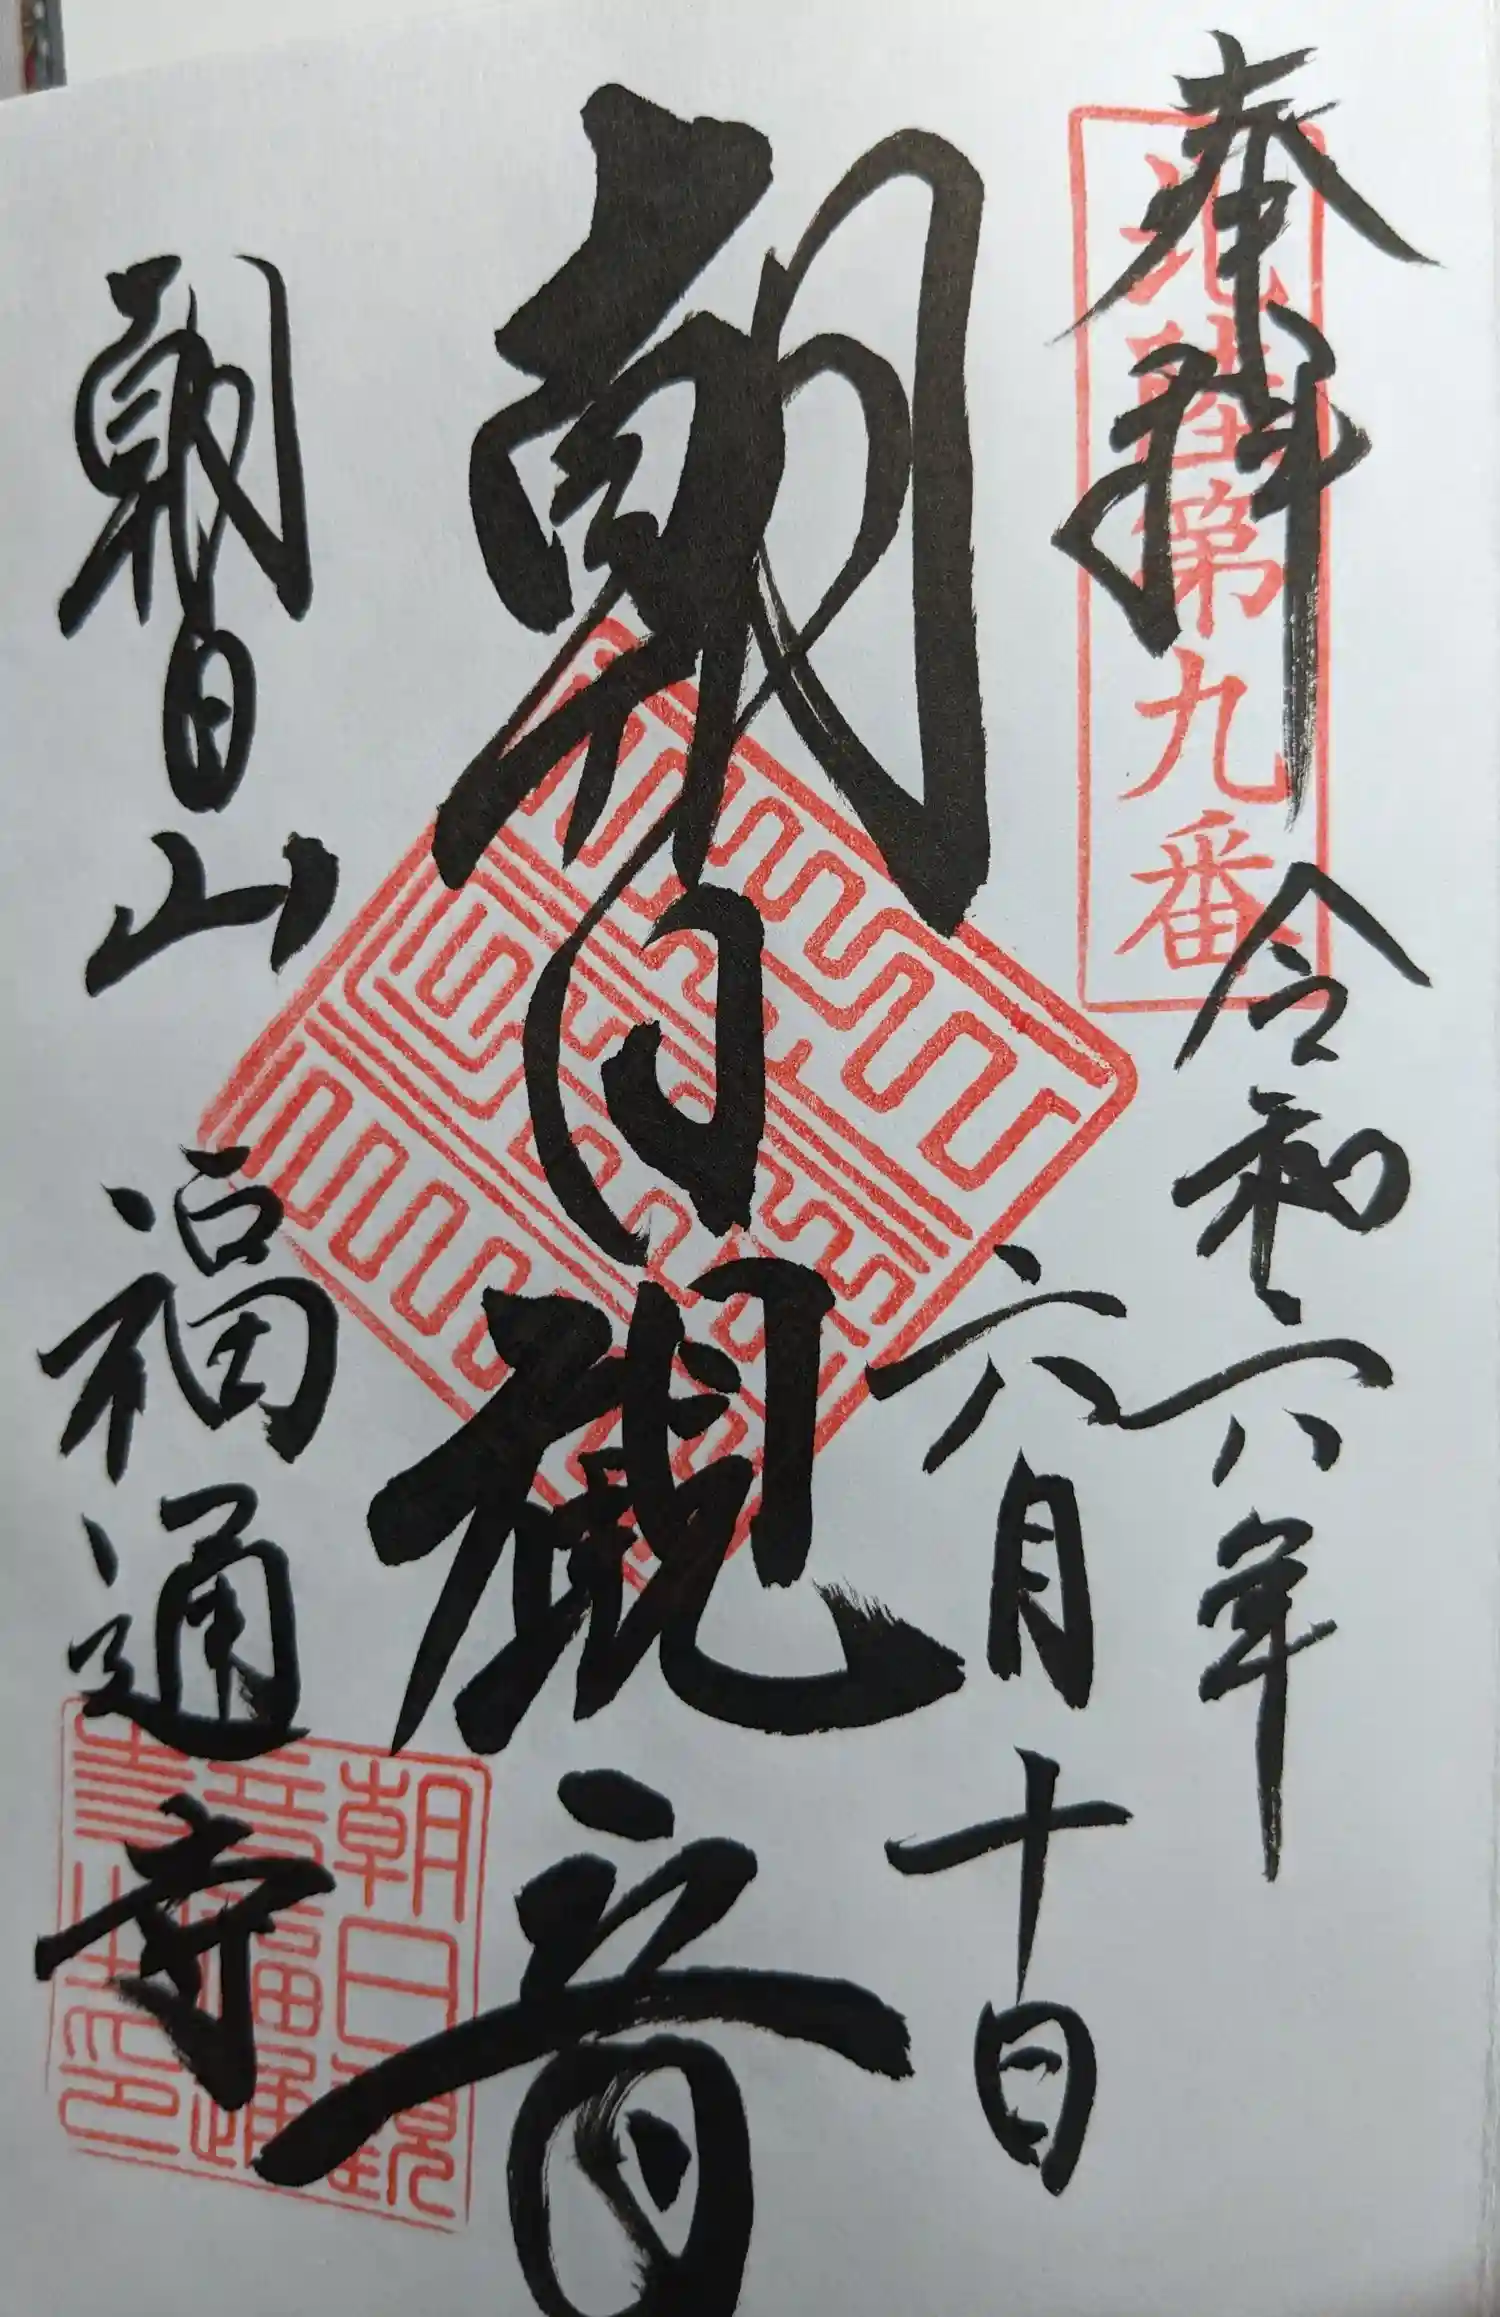 奉拝
北陸第九番
令和六年
六月十日
朝日観音
朝日山 福通寺
朝日観
音福通
寺之印